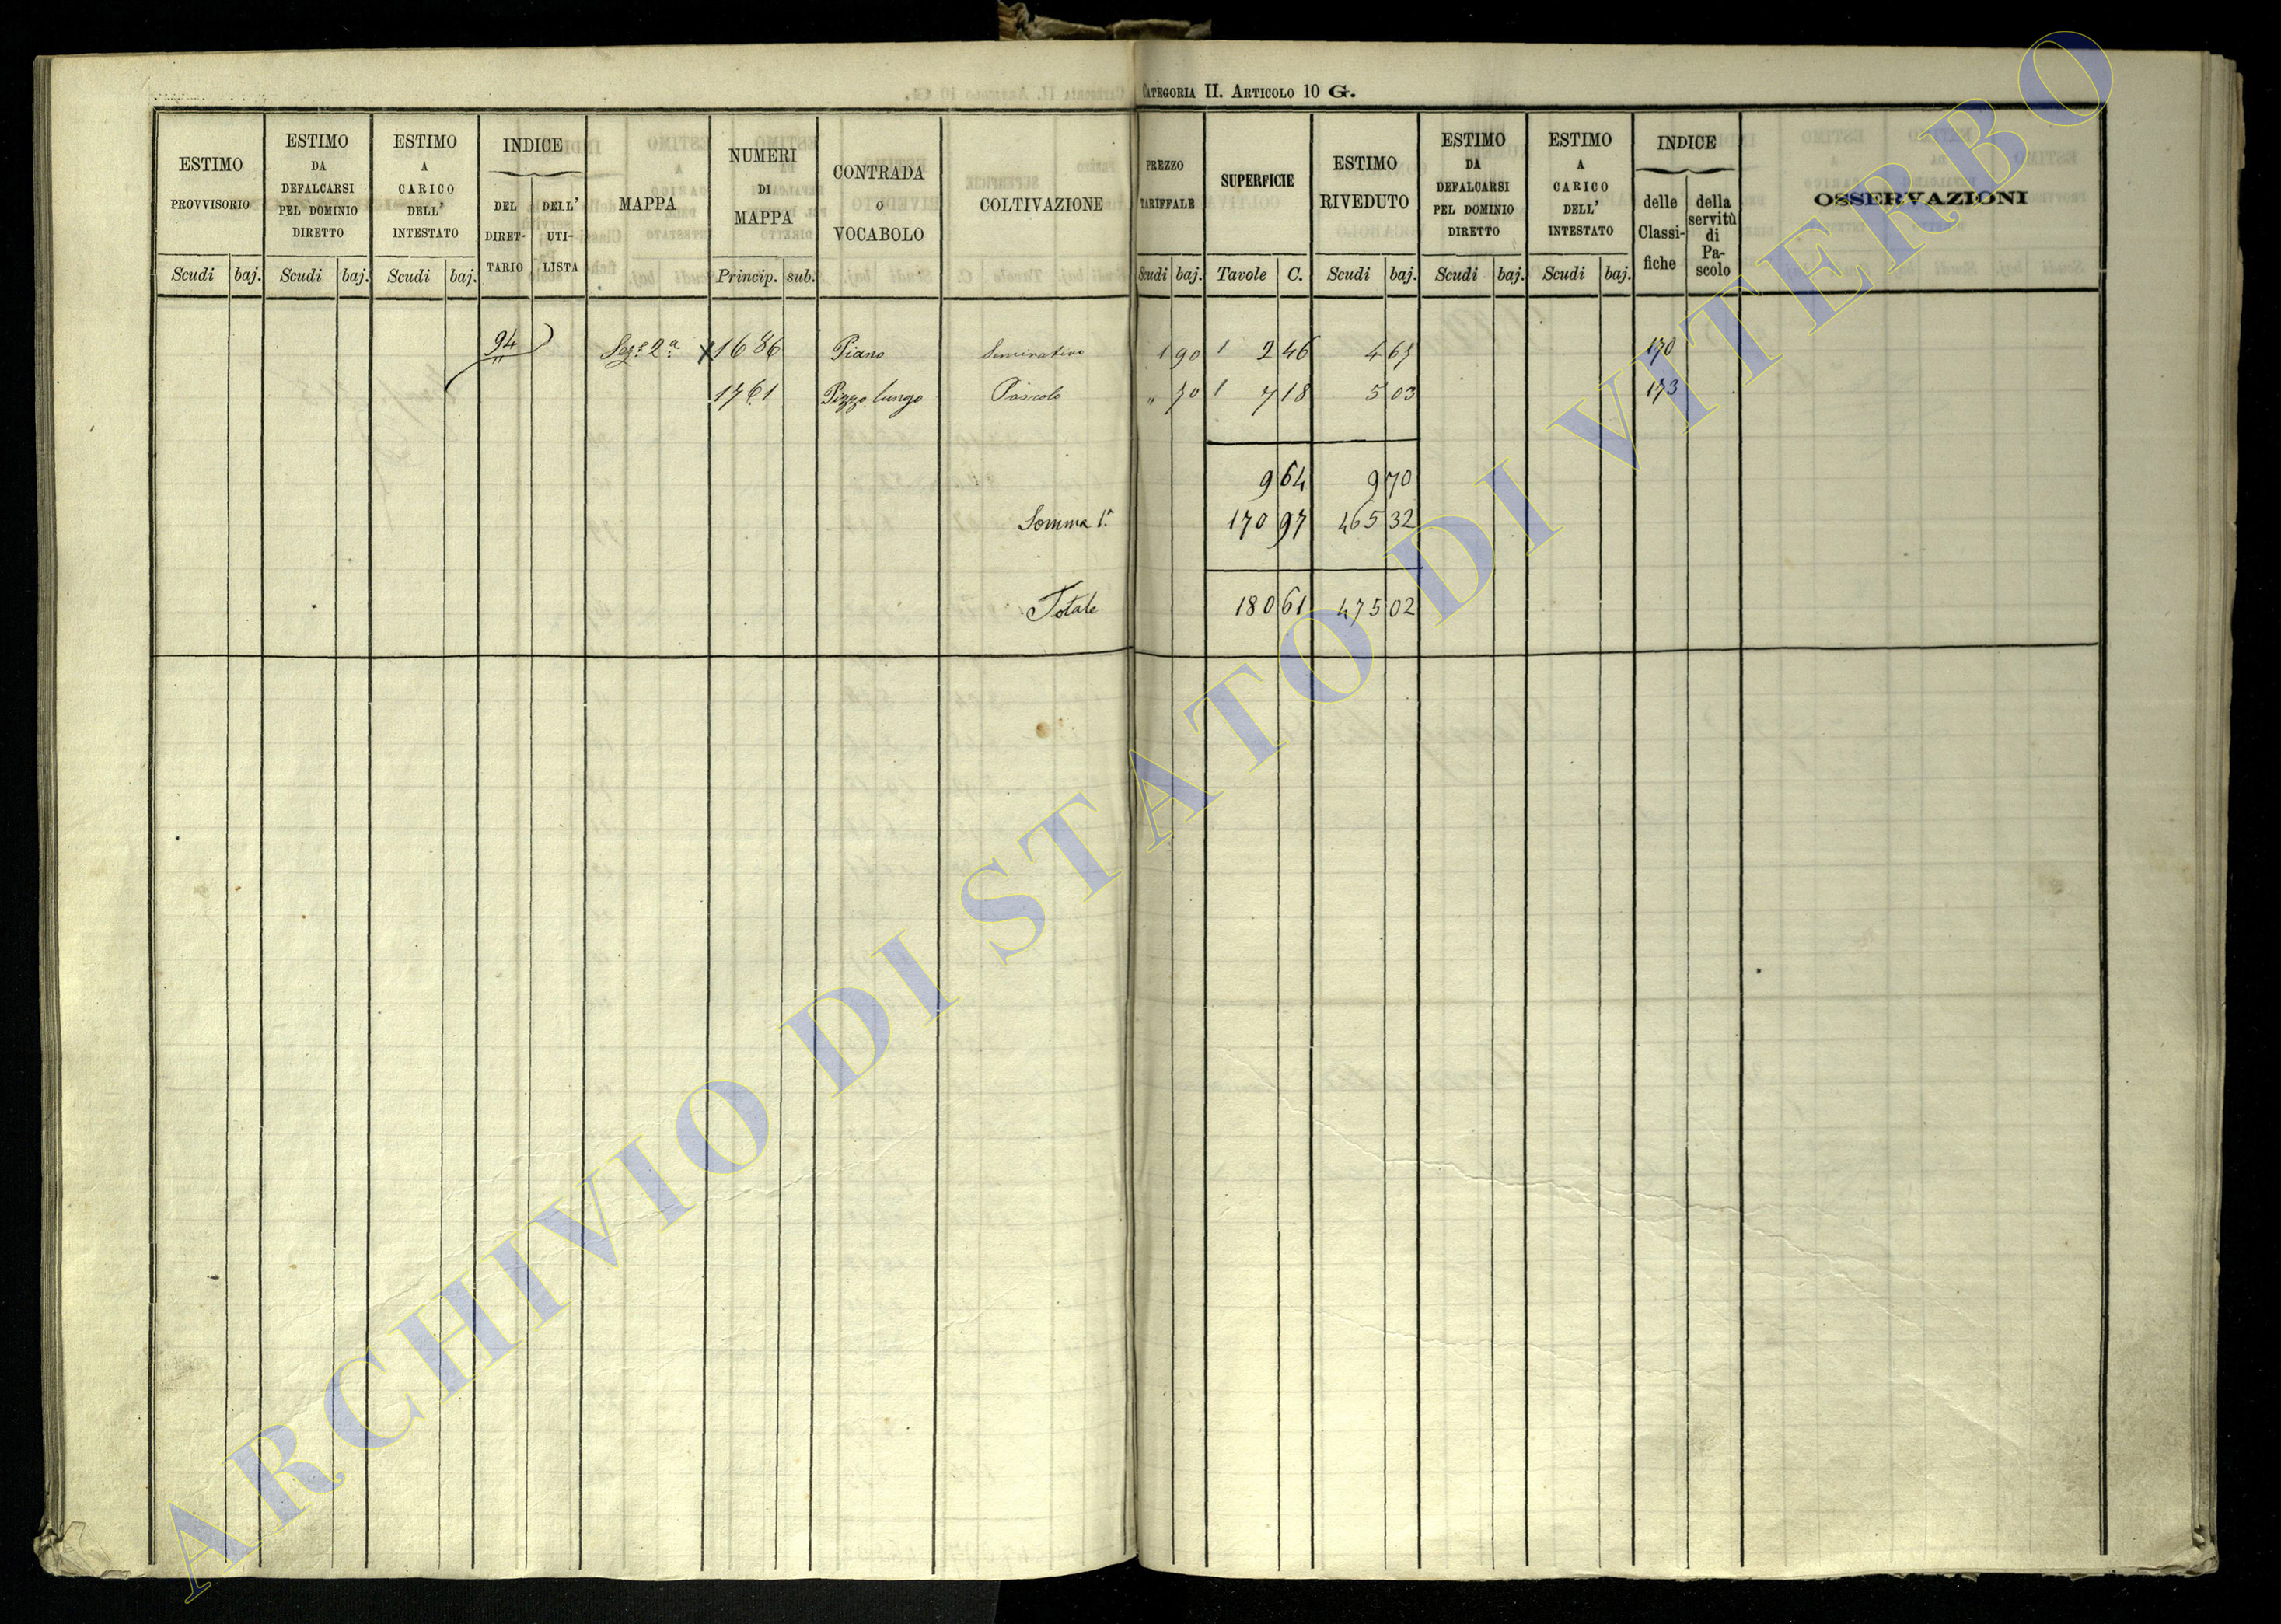 CATEGORIA II. ARTICOLO 10 G.
ESTIMO PROVVISORIO Scudi baj.
ESTIMO DA DEFALCARSI PEL DOMINIO DIRETTO Scudi baj.
ESTIMO A CARICO DELL' INTESTATO Scudi baj.
INDICE DEL DIRET-TARIO DELL' UTI-LISTA
MAPPA
NUMERI DI MAPPA Princip. sub.
CONTRADA O VOCABOLO
COLTIVAZIONE
PREZZO TARIFFALE Scudi baj.
SUPERFICIE Tavole C.
ESTIMO RIVEDUTO Scudi baj.
ESTIMO DA DEFALCARSI PEL DOMINIO DIRETTO Scudi baj.
ESTIMO A CARICO DELL' INTESTATO Scudi baj.
INDICE delle Classi-fiche della servitù di Pa-scolo
OSSERVAZIONI
94 Sez.e 2a x 1686 Piano Seminativo 1 90 1 2 46 4 67 170
1761 Pizzo lungo Pascolo " 70 1 7 18 5 03 173
9 64 9 70
Somma 1a 170 97 465 32
Totale 180 61 475 02
ARCHIVIO DI STATO DI VITERBO